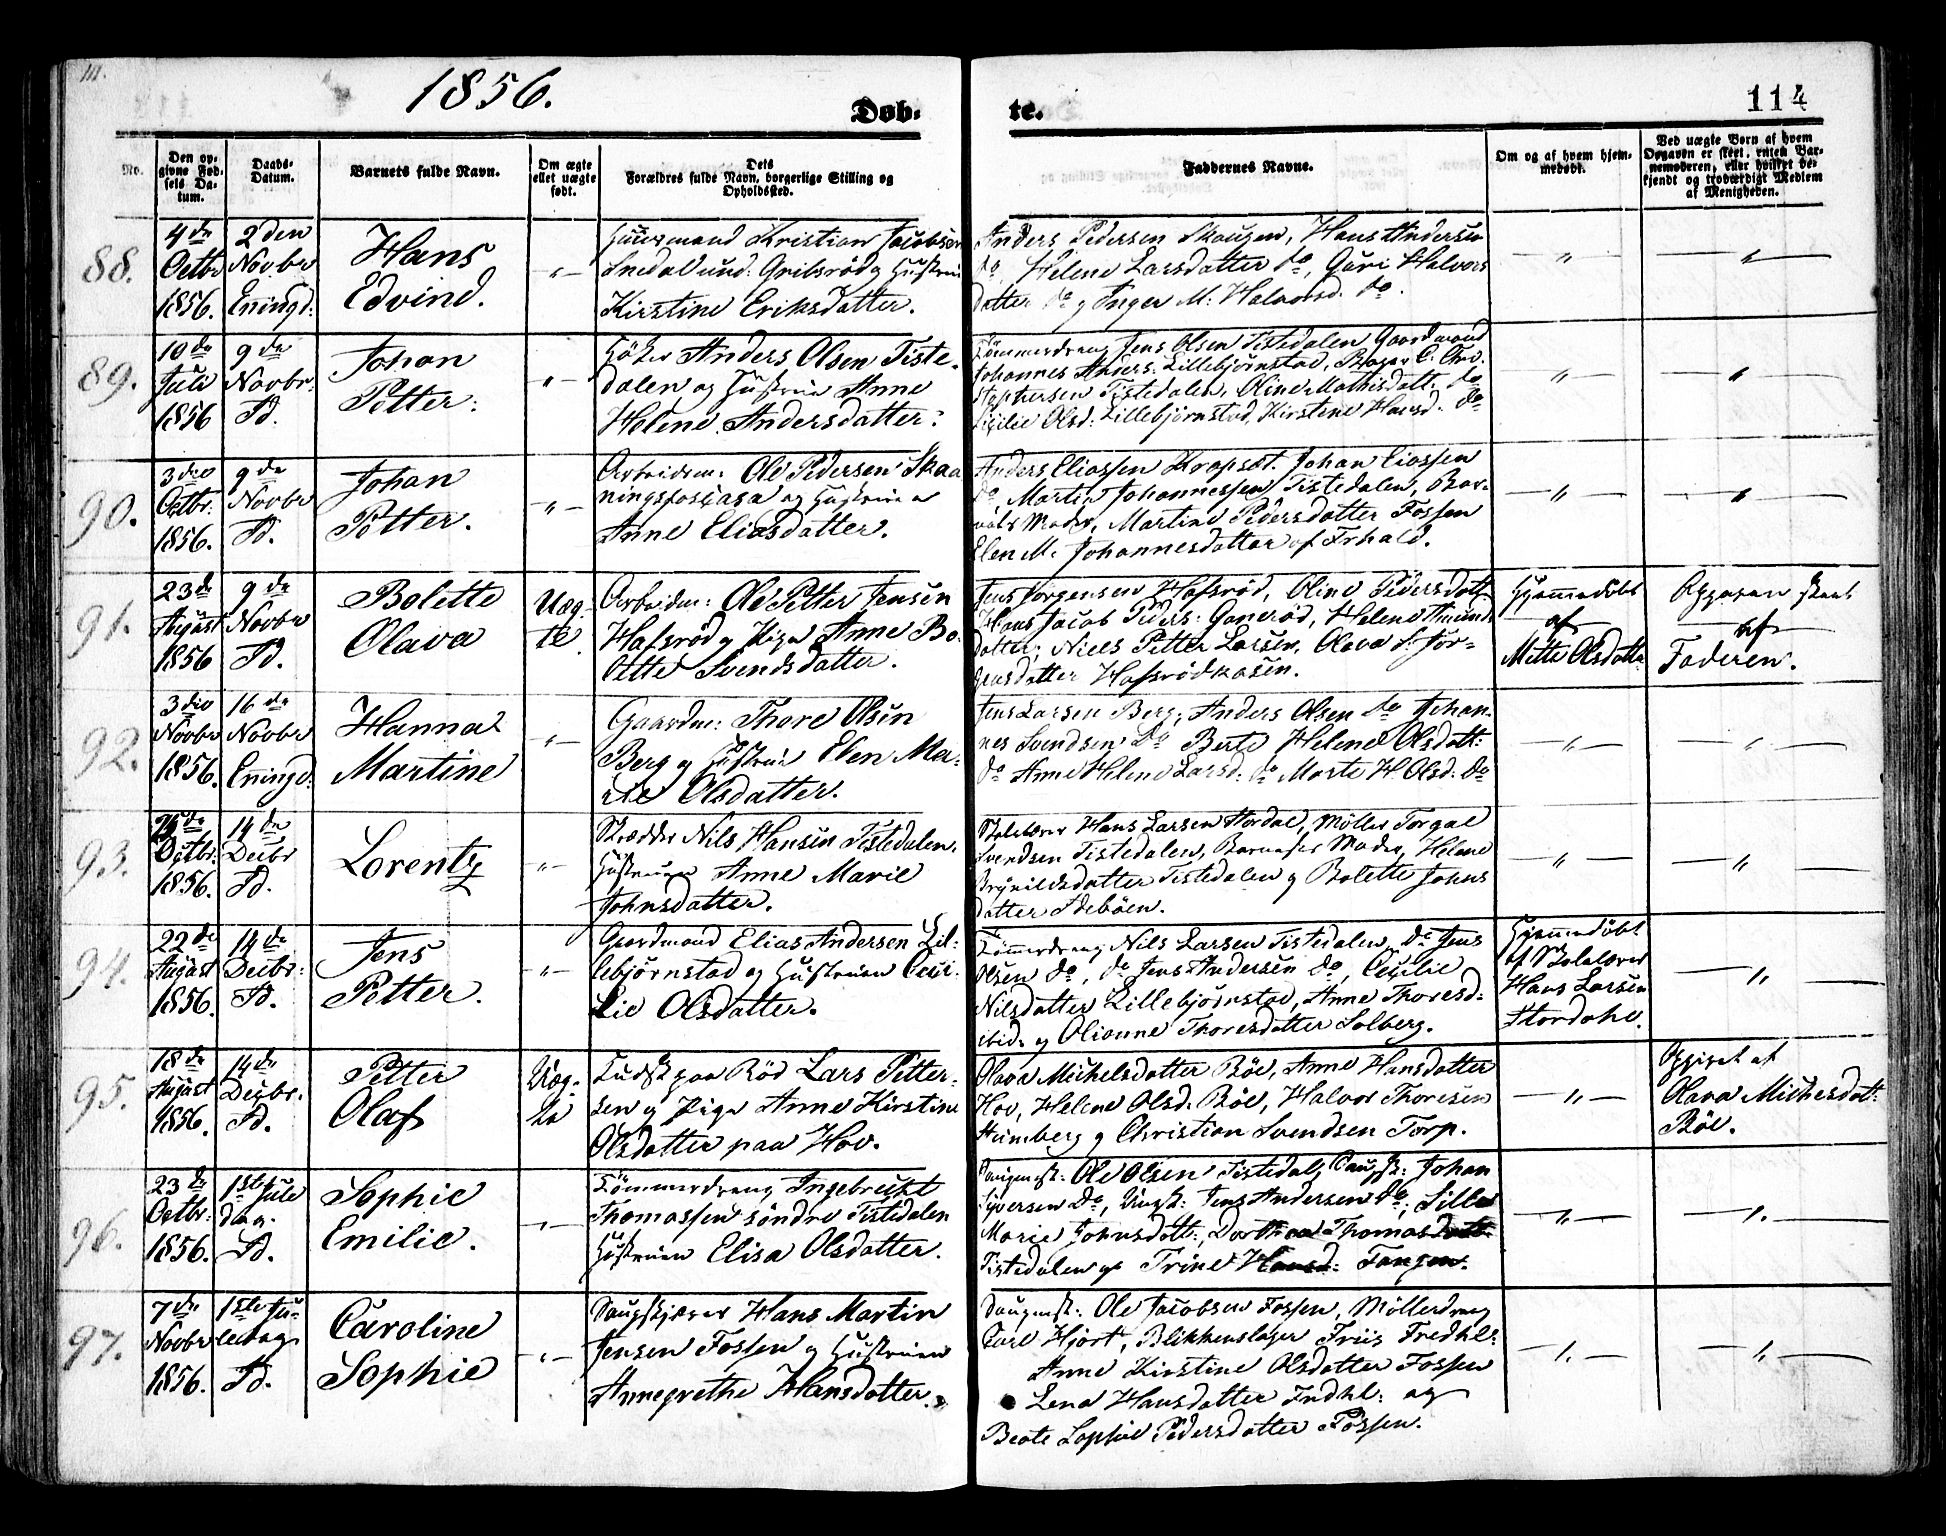 1856.
114
Døb-
te.
No.
Den op-
givne Fød-
sels Da-
tum.
Daabs-
Datum.
Barnets fulde Navn.
Om ægte
ellet uægte
født.
Dets
Forældres fulde Navn, borgerlige Stilling og
Opholdssted.
Faddernes Navne.
Om og af hvem hjem-
medøbt.
Ved uægte Born af hvem
Opgaven er skeet, enten Bar-
nemoderen, eller hvilket be-
kjendt og troværdigt Medlem
af Menigheden.
88.
4de
Octbr
1856.
2den
Novbr
Eningd:
Hans
Edvind.
Huusmand Kristian Jacobsen
Snedal und: Grilsrød og Hustrue
Kirstine Eriksdatter.
Anders Pedersen Skougen, Hans Andersen
do, Helene Larsdatter do, Guri Halvors
datter do og Inger M: Halvorsd. do.
89.
10de
Juli
1856
9de
Novbr.
Id.
Johan
Petter.
Anders Olsen Tiste-
dalen og Hustrue Anne
Helene Andersdatter.
Tømmerdreng Jens Olsen Tistedalen Gaardmand
Johannes Anders: Lillebjørnstad, Bager C. Chri-
stophersen Tistedalen, Oline Mathisdatt: do
Cicilie Olsd: Lillebjørnstad, Kirstine Hansd. do
90.
3die
Octbr.
1856.
9de
Novbr
Id.
Johan
Petter.
Arbeidsm: Ole Pedersen Skaa
ningsfos og Hustruen
Anne Eliasdatter.
Anders Eliassen Krapsæt. Johan Eliassen
do Martin Johannessen Tistedalen, Bar-
nets Moder, Martine Pedersdatter Fossen
Elen M. Johannesdatter af Frhald.
91.
23de
August
1856
9de
Novbr
Id.
Bolette
Olava
Uæg-
te.
Arbeidm: Ole Petter Jensen
Hafsrød og Pige Anne Bo-
lette Svendsdatter.
Jens Jørgensen Hafsrød, Oline Pedersdatt
Hans Jacob Peders: Ganerød, Helene Amunds
datter, Niels Petter Larsen, Olava S. Jør-
gensdatter Hafsrødkasen.
Hjemmedøbt
af
Mette Olsdatter
Opgaven skeet
af
Faderen.
92.
3die
Novbr
1856.
16de
Novbr
Eningd.
Hanna
Martine
Gaardm: Thore Olsen
Berg og Hustrue Elen Ma-
rie Olsdatter.
Jens Larsen Berg, Anders Olsen do Johan-
nes Svendsen do Berte Helene Olsdatt:
do Anne Helene Larsd: do Marte H. Olsd: do
93.
Octbr.
1856.
14de
Decbr
Id.
Lorentz
Skrædder Nils Hansen Tistedalen.
Hustruen Anne Marie
Johnsdatter.
Skolelærer Hans Larsen Stordal, Møller Torgal
Svendsen Tistedalen, Barnets Moder, Helene
Brynildsdatter Tistedalen og Bolette Johns
datter Idebøen.
94.
22de
August
1856.
14de
Decbr.
Id.
Jens
Petter.
Gaardmand Elias Andersen Lil-
lebjørnstad og Hustruen Ceci-
lie Olsdatter.
Tømmerdreng Nils Larsen Tistedalen, do Jens
Olsen do, do Jens Andersen do, Cecilie
Nilsdatter Lillebjørnstad, Anne Thoresd:
ibid: og Olianne Thoresdatter Solberg.
Hjemmedøbt
af Skolelærer
Hans Larsen
Stordahl.
95.
18de
August
1856.
14de
Decbr.
Id.
Petter
Olaf
Uæg-
te
paa Rød Lars Petter-
sen og Pige Anne Kirstine
Olsdatter paa Hov.
Olava Michelsdatter Bøe, Anne Hansdatter
Hov, Helene Olsd. Bøe, Halvor Thoresen
Humberg og Christian Svendsen Torp.
Opgivet af
Olava Michelsdatt:
Bøe.
96.
23de
Octbr.
1856.
1ste Jule
dag.
Id.
Sophie
Emilie.
Tømmerdreng Ingebregt
Thomassen søndre Tistedalen
Hustruen Elisa Olsdatter.
Ole Olsen Tistedal, Johan
Syversen do, Jens Andersen do, Sille
Marie Johnsdatt:, Dorthea Thomasdatt:
Tistedalen og Trine Hansd: Tangen.
97.
7de
Novbr
1856.
1ste Ju-
ledag
Id.
Caroline
Sophie
Saugskjærer Hans Martin
Jensen Fossen og Hustruen
Annegrethe Hansdatter.
Saugmest: Ole Jacobsen Fossen, Møllerdreng
Carl Hjort, Blikkenslager Friis Fredhl:
Anne Kirstine Olsdatter Fossen
Lena Hansdatter Frdhl: og
Beate Sophie Pedersdatter Fossen.